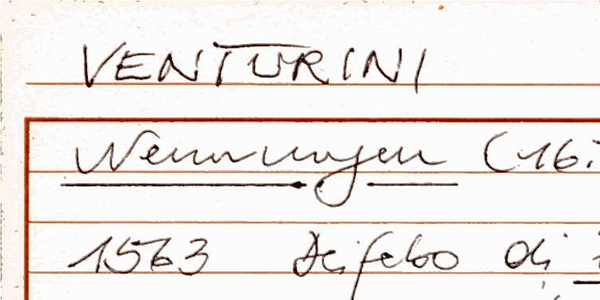 VENTURINI
Nennungen (16
1563 Deifebo di